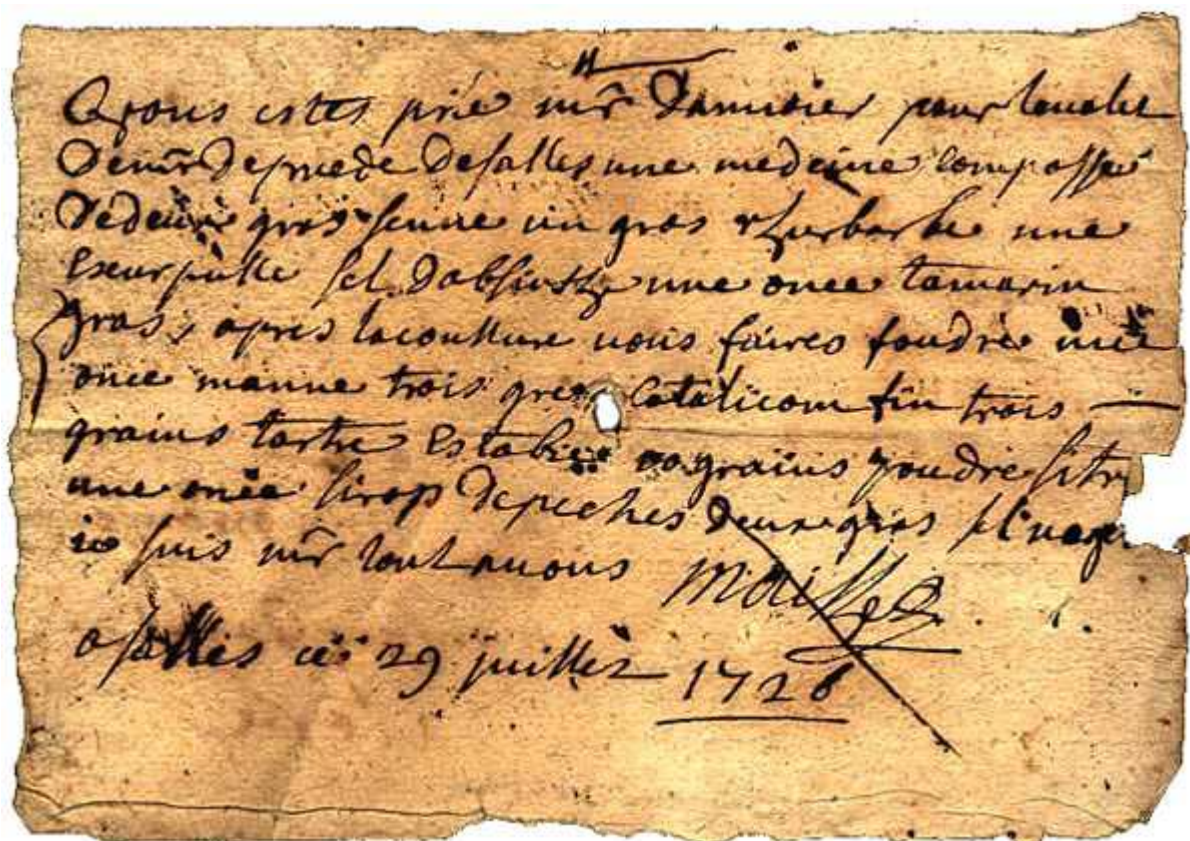 Vous estes prié mr pour levalet
Demr Deprede Desalles une medecine composse
Dedeux gros senne un gros rhurbarbe une
sel Dabsinthe une once tamarin
gras, apres lacoulture vous faires foudre une
once manne trois gros Catalicom fin trois
grains tartre Estabie 20 grains poudre
une onée sirop Depeches deux gros sel
ie suis mr tout auous Maillet
a salles ce 29 juillet 1726